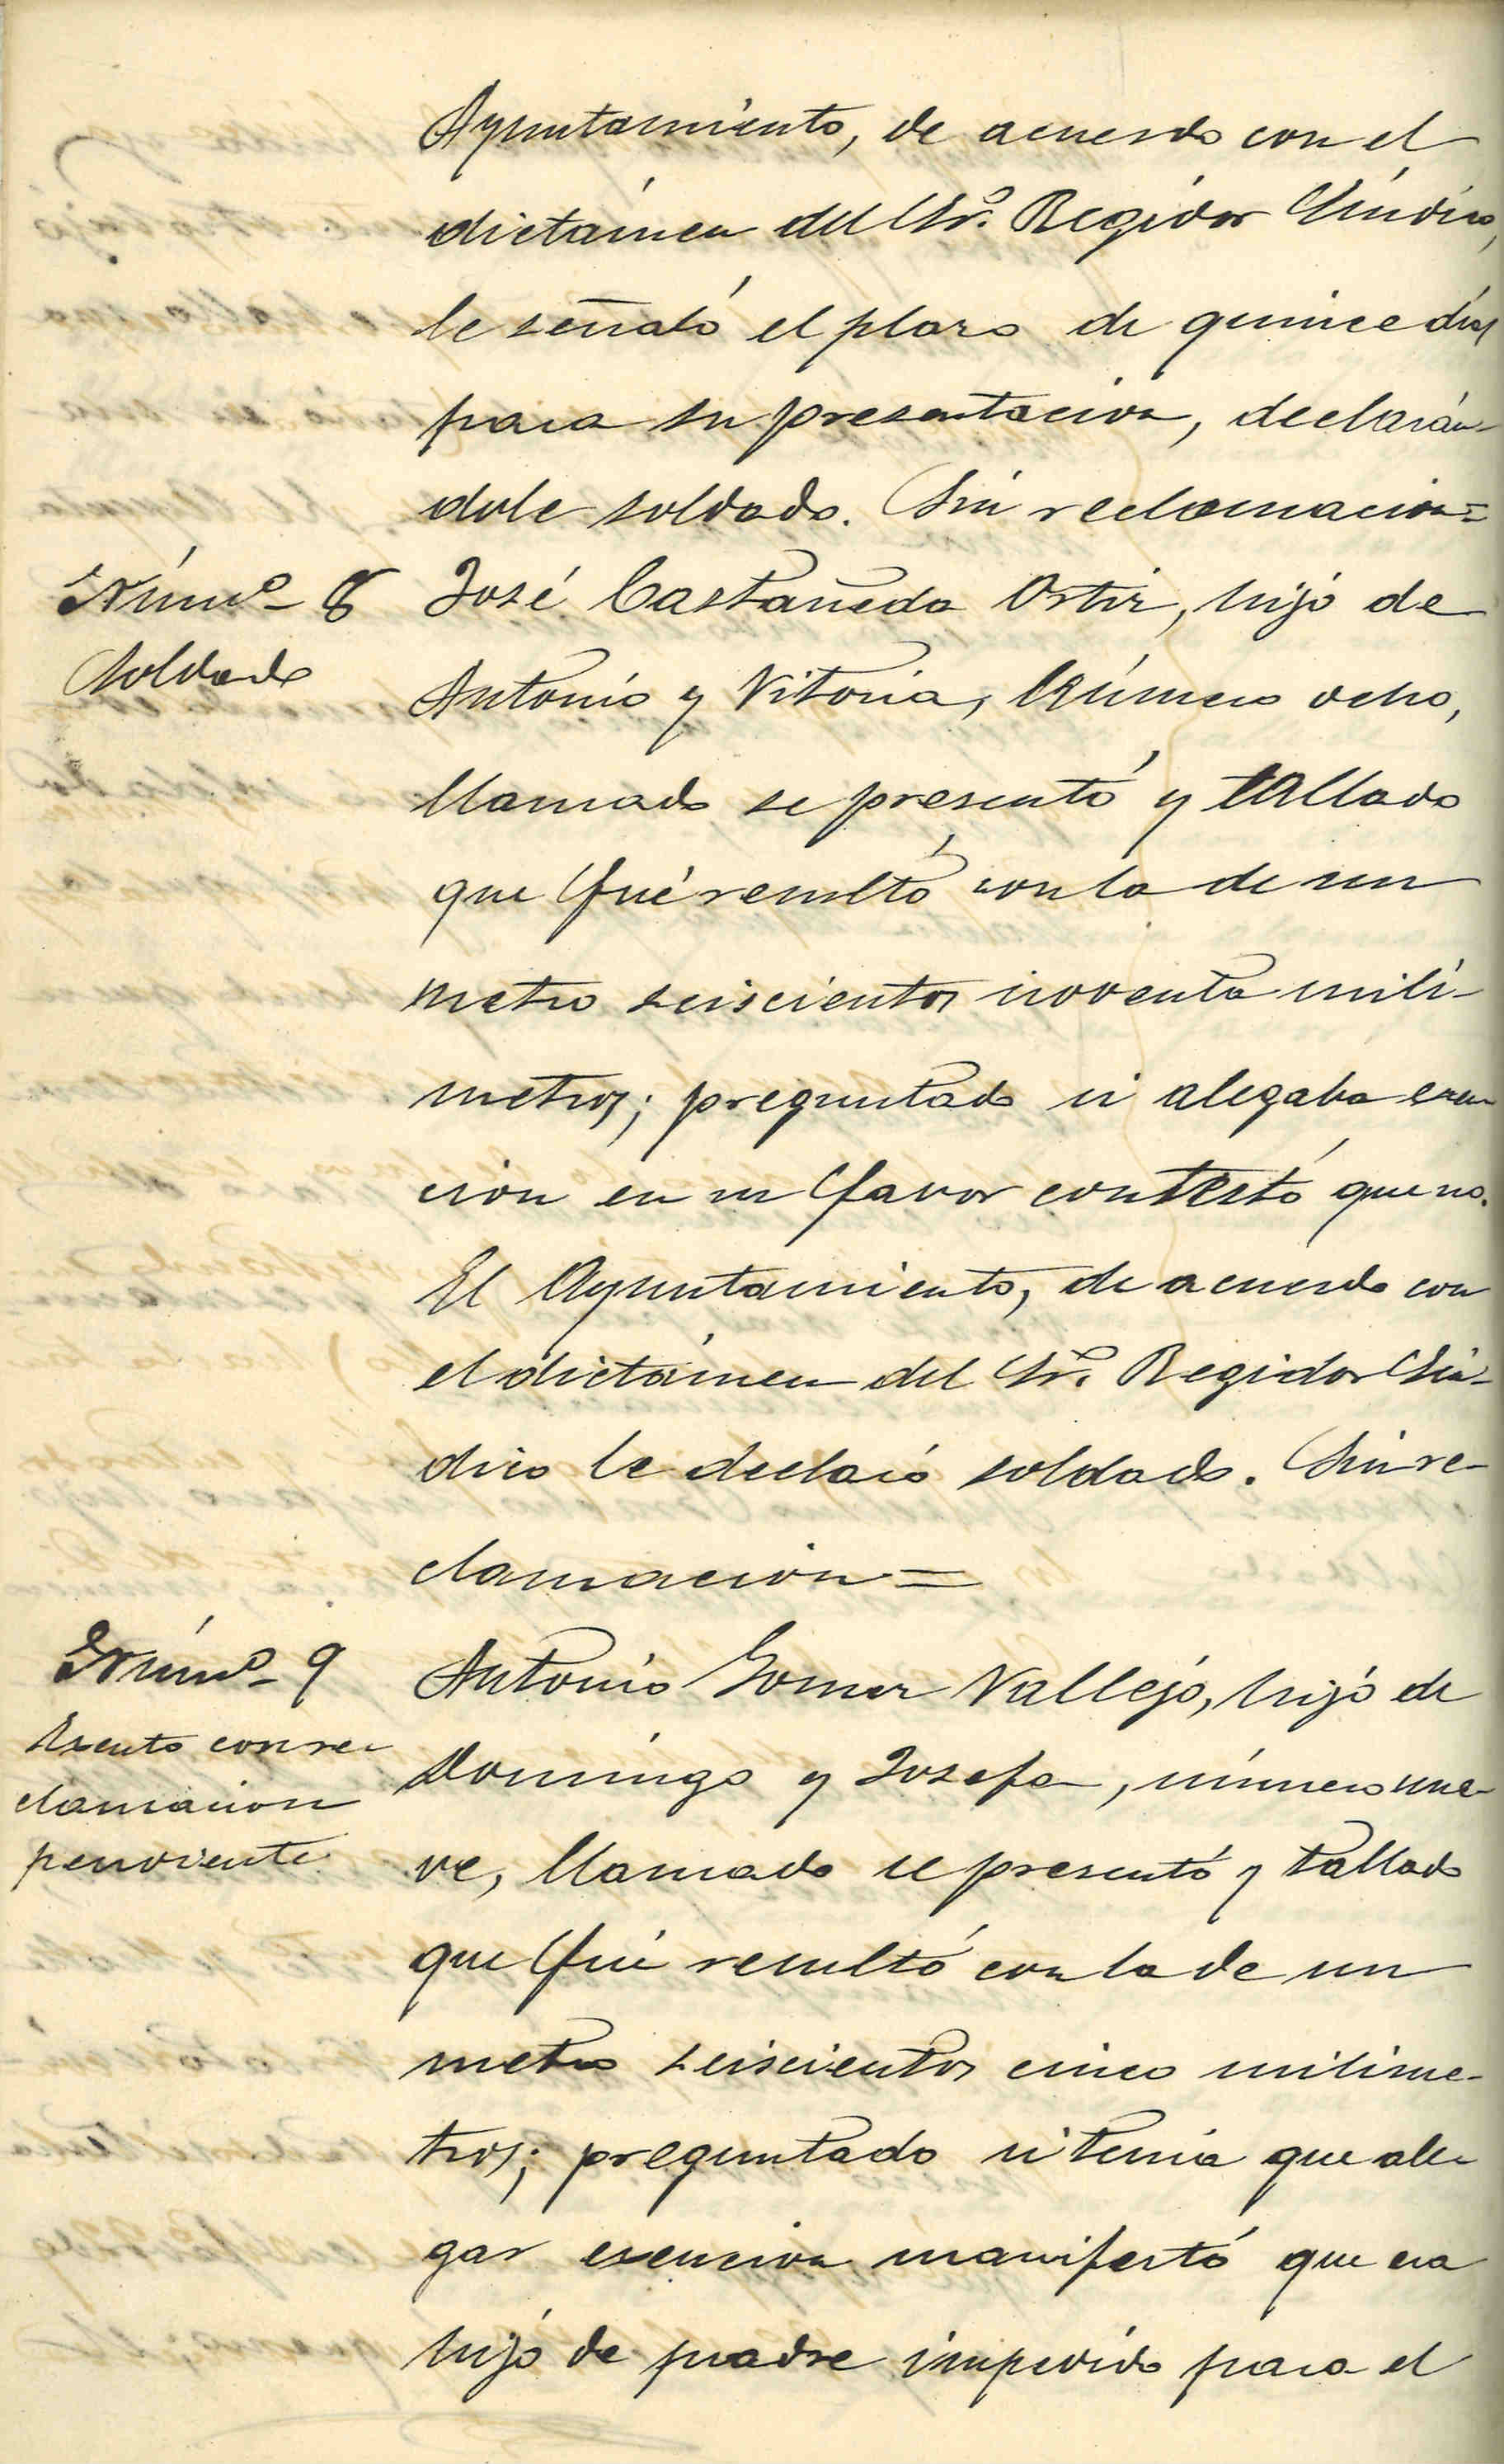 Ayuntamiento, de acuerdo con el
dictámen del Sr. Regidor Síndico,
le señaló el plazo de quince días
para su presentacion, declarán-
dole soldado. Sin reclamacion=
Núm.º 8
Soldado
José Castañeda Ortiz, hijo de
Antonio y Vitoria, Número ocho,
llamado se presentó y tallado
que fué resultó con la de un
metro seiscientos noventa milí-
metros; preguntado si alegaba exen
cion en su favor contestó que no.
El Ayuntamiento, de acuerdo con
el dictámen del Sr. Regidor Sín-
dico le declaró soldado. Sin re-
clamacion=
Núm.º 9
Exento con re-
clamacion
pendiente
Antonio Gomez Vallejo, hijo de
Domingo y Josefa, número nue-
ve, llamado se presentó y tallado
que fué resultó con la de un
metro seiscientos cinco milíme-
tros; preguntado si tenia que ale-
gar exencion manifestó que era
hijo de padre impedido para el